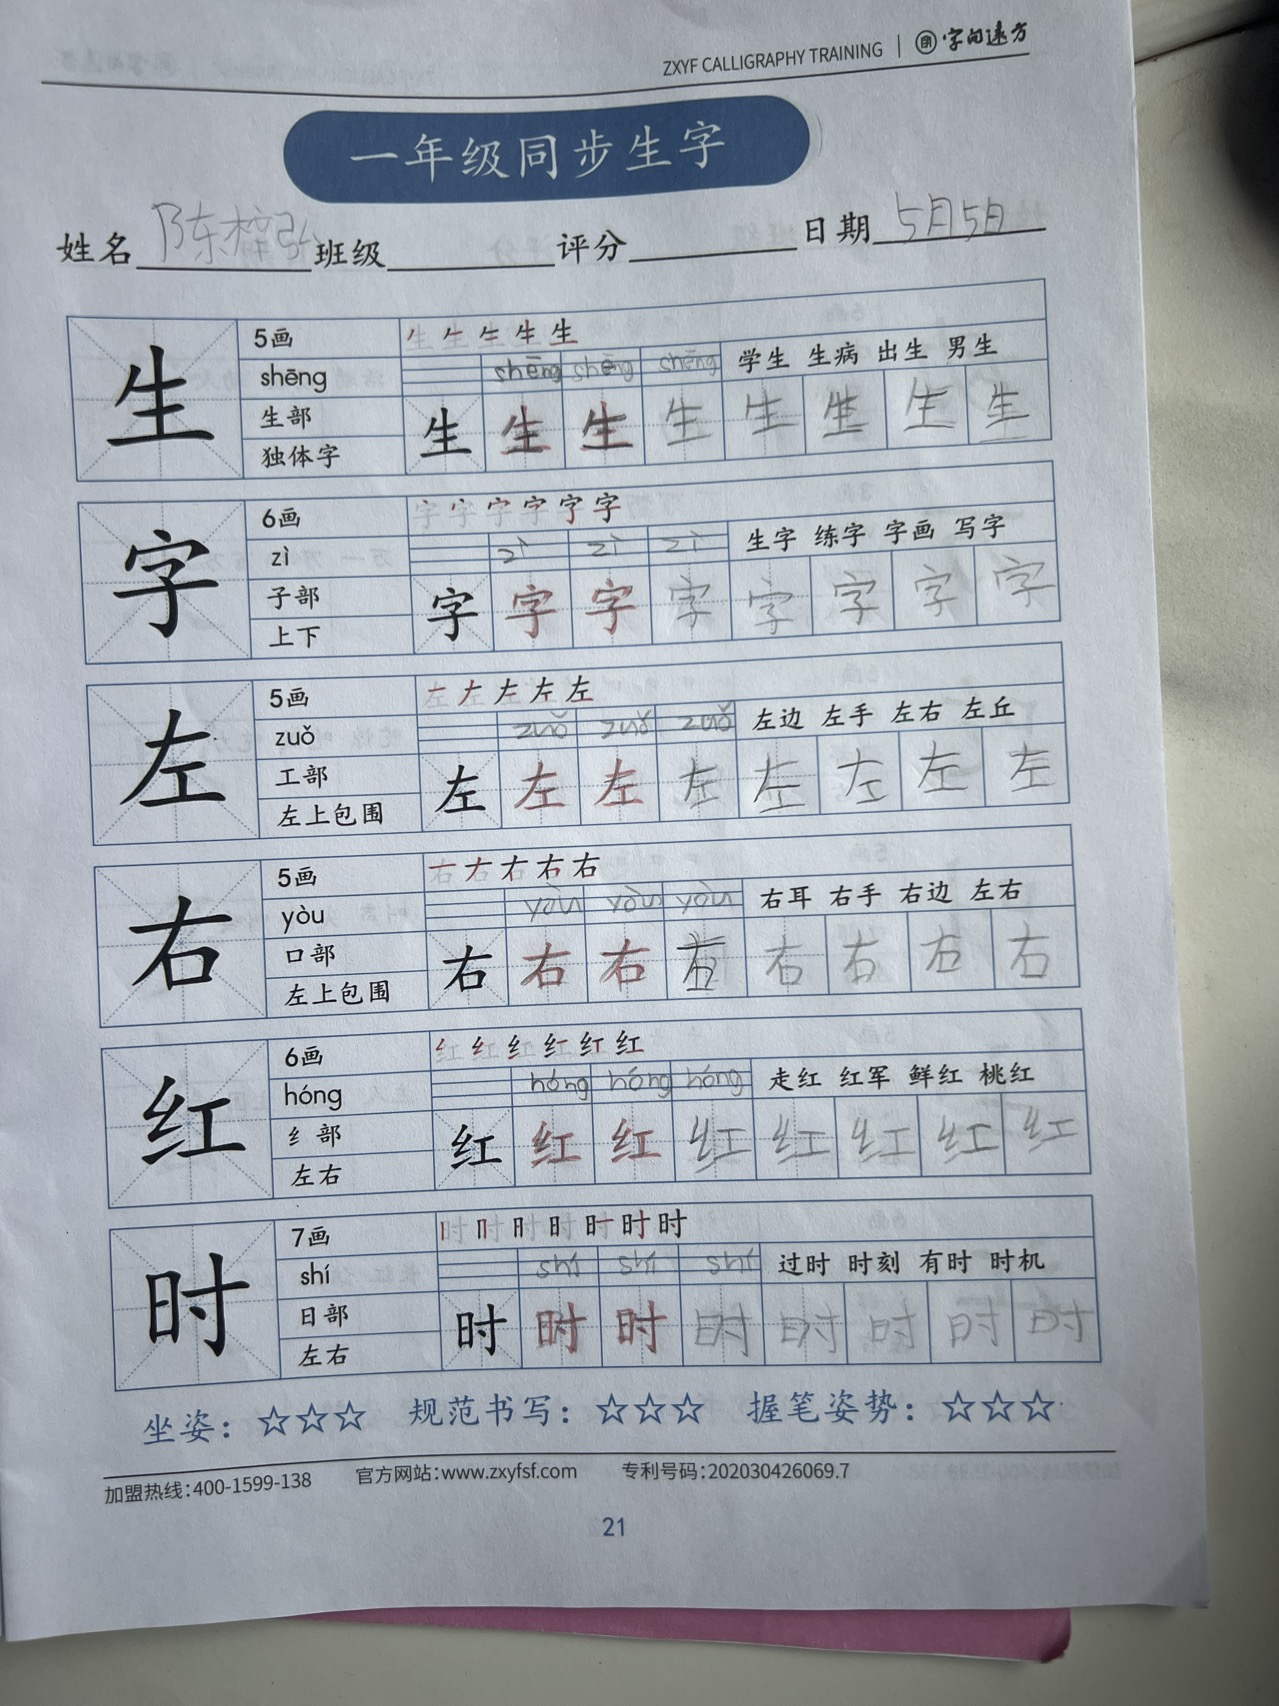 ZXYF CALLIGRAPHY TRAINING | 字间远方
一年级同步生字
姓名 陈梓弘 班级 评分 日期 5月5日
生 5画 生 生 生 生 生
shēng shēng shēng shēng 学生 生病 出生 男生
生部 生 生 生 生 生 生 生 生
独体字
字 6画 字 字 字 字 字 字
zì zì zì zì 生字 练字 字画 写字
子部 字 字 字 字 字 字 字 字
上下
左 5画 左 左 左 左 左
zuǒ zuǒ zuǒ zuǒ 左边 左手 左右 左丘
工部 左 左 左 左 左 左 左 左
左上包围
右 5画 右 右 右 右 右
yòu yòu yòu yòu 右耳 右手 右边 左右
口部 右 右 右 右 右 右 右 右
左上包围
红 6画 红 红 红 红 红 红
hóng hóng hóng hóng 走红 红军 鲜红 桃红
纟部 红 红 红 红 红 红 红 红
左右
时 7画 时 时 时 时 时 时 时
shí shí shí shí 过时 时刻 有时 时机
日部 时 时 时 时 时 时 时 时
左右
坐姿：☆☆☆ 规范书写：☆☆☆ 握笔姿势：☆☆☆
加盟热线：400-1599-138 官方网站：www.zxyfsf.com 专利号码：202030426069.7
21